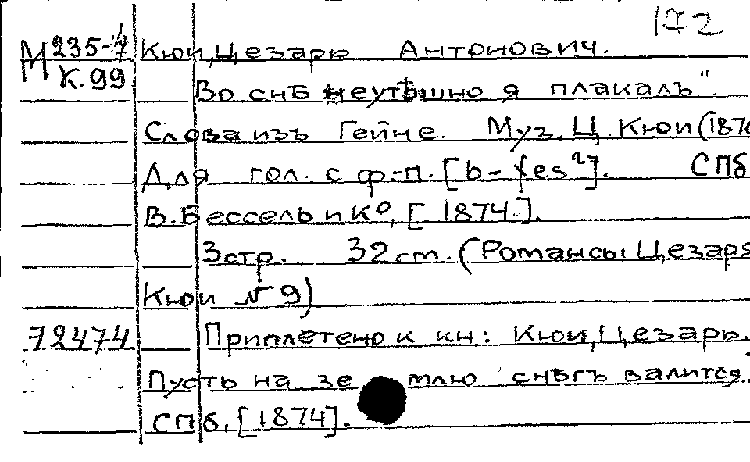 172
М 235-7 Кюи, Цезарь Антонович.
К.99
Во снѣ неутѣшно я плакалъ".
Слова изъ Гейне. Муз. Ц. Кюи (187
Для гол. с ф-п. [b-fes²]. СПб
В. Бессель и К⁰, [1874].
3 стр. 32 cm. (Романсы Цезаря
Кюи № 9)
72474 Приплетено к кн: Кюи, Цезарь.
Пусть на землю снѣгъ валится.
СПб, [1874].